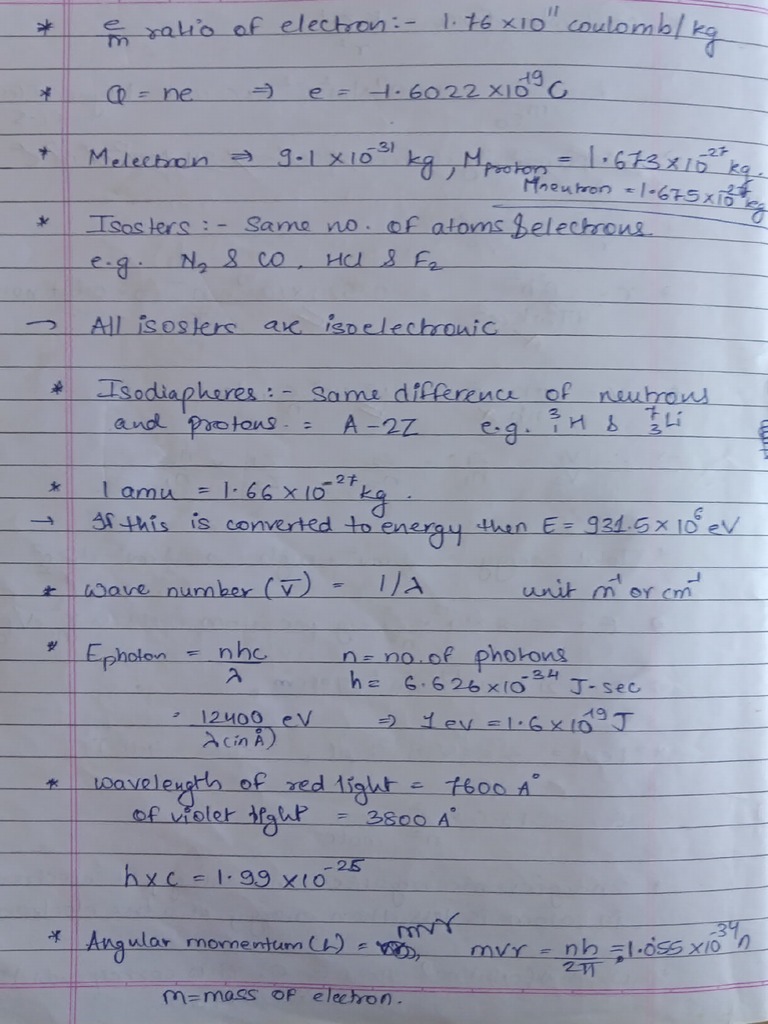 * e/m ratio of electron:- 1.76×10¹¹ coulomb/kg
* Q = ne ⇒ e = -1.6022×10⁻¹⁹C
* Melectron ⇒ 9.1×10⁻³¹ kg, Mproton = 1.673×10⁻²⁷ kg.
Mneutron = 1.675×10⁻²⁷ kg
* Isosters :- Same no. of atoms & electrons
e.g. N₂ & CO, HCl & F₂
→ All isosters are isoelectronic
* Isodiapheres :- Same difference of neutrons
and protons. = A-2Z e.g. ³₁H & ⁷₃Li
* 1 amu = 1.66×10⁻²⁷kg.
→ If this is converted to energy then E = 931.5×10⁶ eV
* Wave number (v̅) = 1/λ unit m⁻¹ or cm⁻¹
* Ephoton = nhc/λ n = no. of photons
h = 6.626×10⁻³⁴ J-sec
= 12400/λ(in Å) eV ⇒ 1 ev = 1.6×10⁻¹⁹J
* Wavelength of red light = 7600 A°
of violet light = 3800 A°
h×c = 1.99×10⁻²⁵
* Angular momentum (L) = mvr, mvr = nh/2π = 1.055×10⁻³⁴n
m=mass of electron.